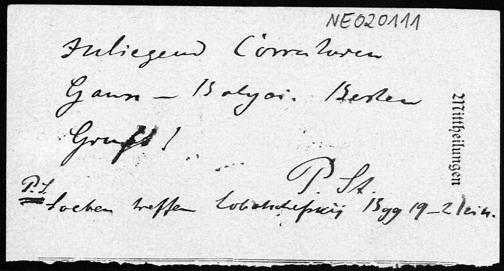 NE020111
Anliegend Correcturen
Gauss – Bolyai. Besten
Gruß!
P. St.
P.S.
Soeben treffen Lobatschefskij Bgg 19–21 ein.
Mittheilungen